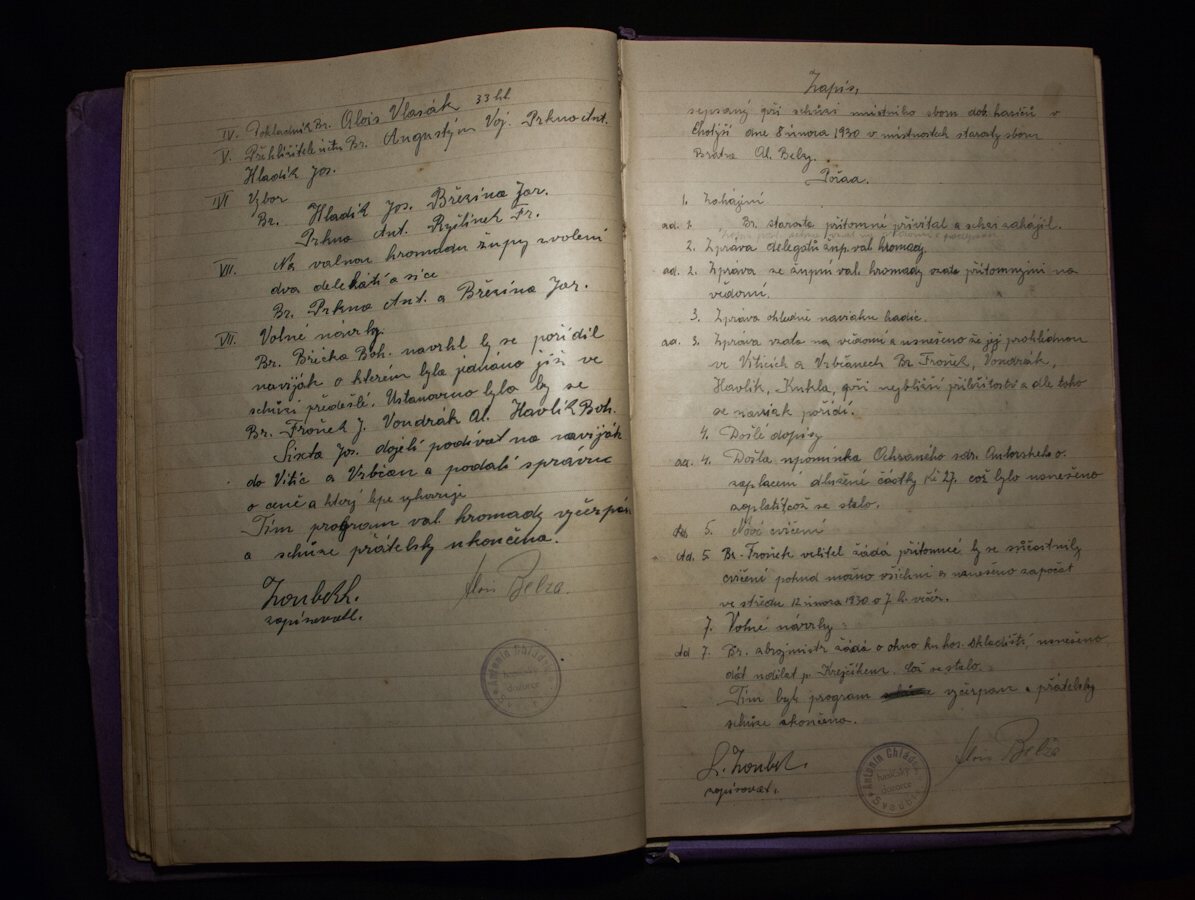 IV. Pokladník Br. Alois Vlasák 33 hl.
V. Přehlížitelé účtu Br. Augustýn Voj. Prkno Ant.
Hladík Jos.
VI Výbor
Br. Hladík Jos. Březina Jar.
Prkno Ant. Ryšlinek Fr.
VII. Na valnou hromadu župy zvoleni
dva delekáti a sice
Br. Prkno Ant. a Březina Jar.
VII. Volné návrhy.
Br. Břicha Boh. navrhl by se pořídil
naviják o kterém bylo jednáno již ve
schůzi předešlé. Ustanoveno bylo by se
Br. Froňek J. Vondrák Al. Havlík Boh.
Sixta Jos. dojeli podívat na naviják
do Vitic a Vrbčan a podali správu
o ceně a který lépe vyhovuje
Tím program val. hromady vyčerpán
a schůze přátelsky ukončena.
Zoubek L.
zapisovatl.
Alois Belza.
Antonín Chládek
hasičský
dozorce
Zápis,
sepsaný při schůzi místního sboru dob. hasičů v
Chotýši dne 8 února 1930 v místnostech starosty sboru
Bratra Al. Belzy.
Pořad.
1. Zahájení
ad. 1. Br. starosta přítomné přivítal a schůzi zahájil.
2. Zpráva delegátů žup. val. hromady.
ad. 2. Zpráva ze župní val. hromady vzata přítomnými na
vědomí.
3. Zpráva ohledně naviáku hadic.
ad. 3. Zpráva vzata na vědomí a usneseno že jej prohlédnou
ve Viticích a Vrbčanech Br. Froňek, Vondrák,
Havlík, Kukla, při nejbližší příležitosti a dle toho
se naviák pořídí.
4. Došlé dopisy
ad. 4. Došla upomínka Ochraného sdr. Autorského o
zaplacení dlužené částky Kč 27. což bylo usneseno
zaplatit což se stalo.
5. Nové cvičení
ad. 5. Br. Froňek velitel žádá přítomné by se súčastnily
cvičení pokud možno všichni a usneseno započat
ve středu 12 února 1930 o 7 h. večer.
7. Volné návrhy:
ad 7. Br. zbrojmistr žádá o okno ku has. skladišti, usneseno
dát udělat p. Krejčíkem. Což se stalo.
Tím byl program vyčerpan a přátelsky
schůze skončena.
L. Zoubek.
zapisovat.
Antonín Chládek
hasičský
dozorce
Alois Belza